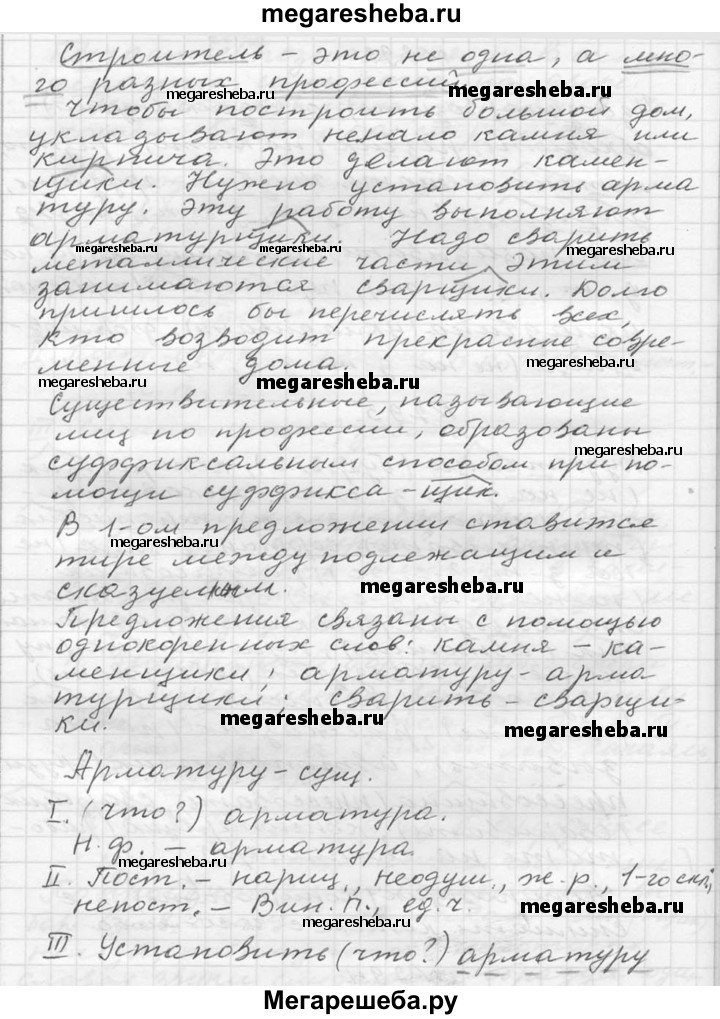 megaresheba.ru
Строитель – это не одна, а мно-
го разных профессий.
megaresheba.ru megaresheba.ru
Чтобы построить большой дом,
укладывают немало камня или
кирпича. Это делают камен-
щики. Нужно установить арма
туру. Эту работу выполняют
арматурщики. Надо сварить
megaresheba.ru megaresheba.ru megaresheba.ru
металлические части. Этим
занимаются сварщики. Долго
пришлось бы перечислять всех,
кто возводит прекрасные совре-
менные дома.
megaresheba.ru megaresheba.ru megaresheba.ru
Существительные, называющие
лиц по профессии, образованы
megaresheba.ru
суффиксальным способом при по-
мощи суффикса -щик.
В 1-ом предложении ставится
megaresheba.ru
тире между подлежащим и
сказуемым.
megaresheba.ru
Предложения связаны с помощью
однокоренных слов: камня – ка-
менщики; арматуру – арма
турщики; сварить – сварщи-
ки.
megaresheba.ru
Арматуру – сущ.
I. (что?) арматура.
Н.ф. – арматура.
megaresheba.ru
II. Пост. – нариц., неодуш., ж.р., 1-го скл.,
непост. – Вин. п., ед.ч.
megaresheba.ru
III. Установить (что?) арматуру
Мегарешеба.ру